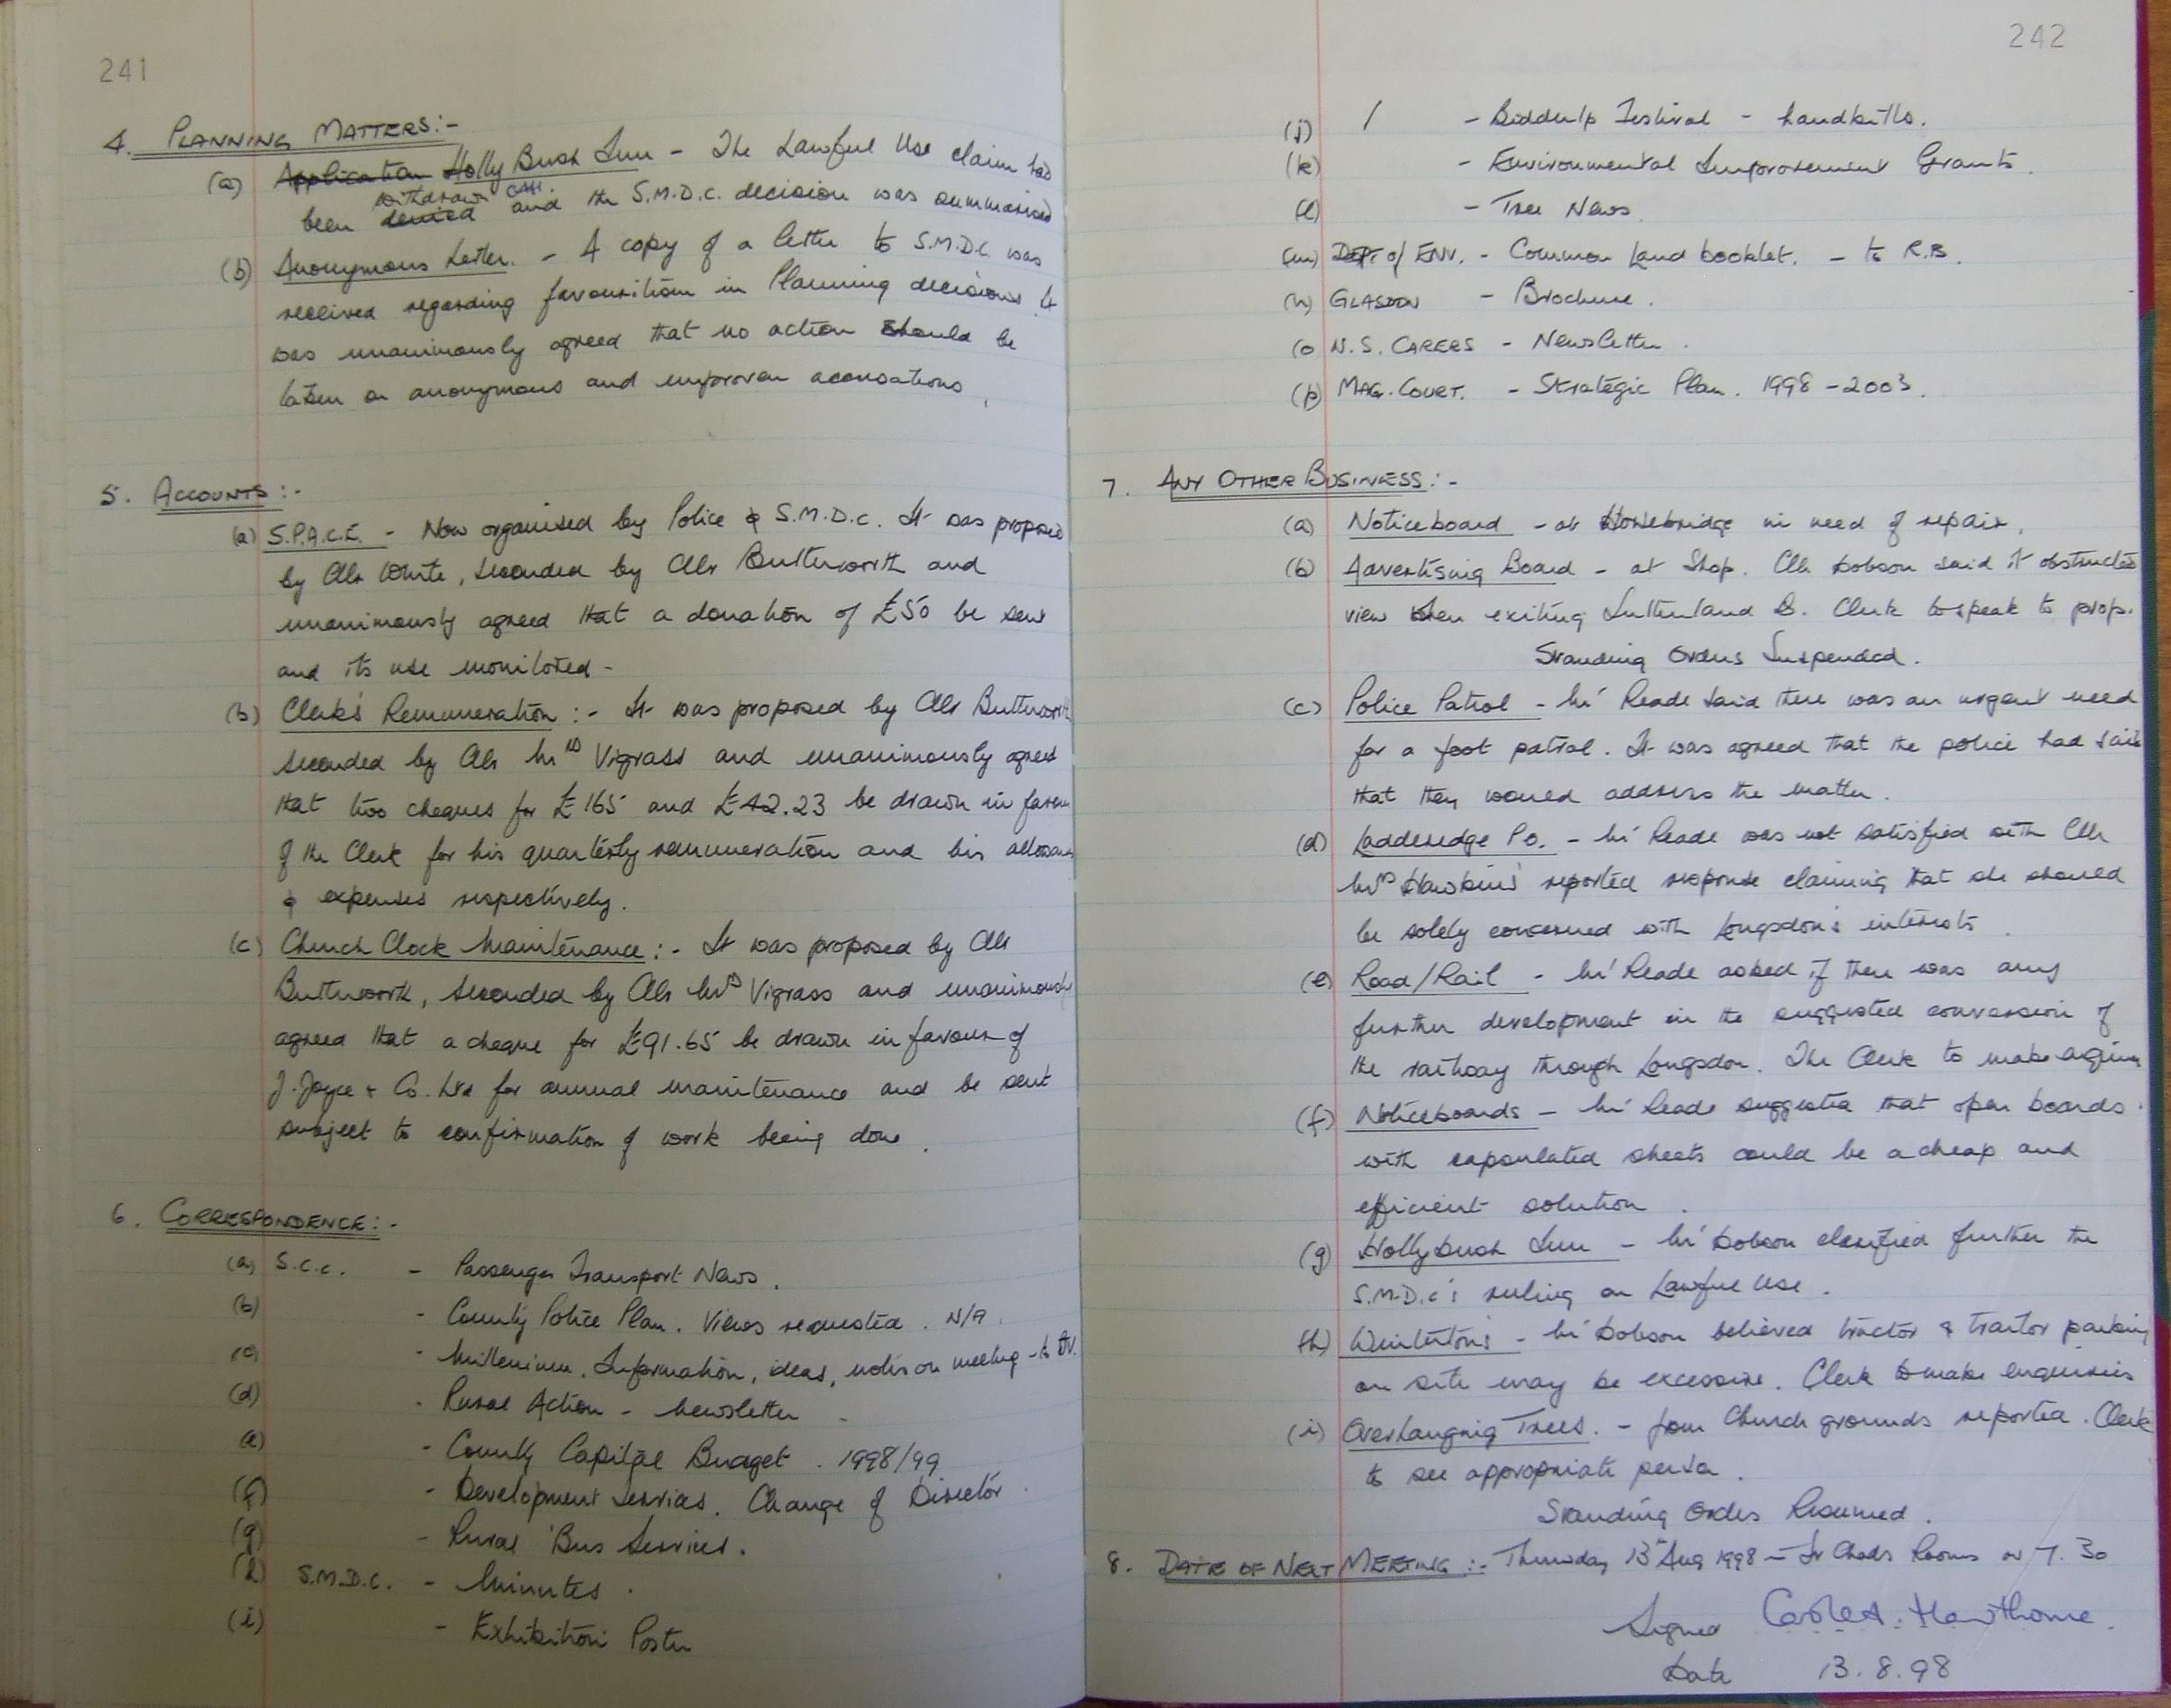 241
4. PLANNING MATTERS:-
(a) Application Holly Bush Inn - The Lawful Use claim had
withdrawn
been denied and the S.M.D.C. decision was summarised
(b) Anonymous Letter. - A copy of a letter to S.M.D.C. was
received regarding favouritism in Planning decisions. It
was unanimously agreed that no action should be
taken on anonymous and unproven accusations.
5. ACCOUNTS:-
(a) S.P.A.C.E. - Now organised by Police & S.M.D.C. It was proposed
by Cllr White, seconded by Cllr Butterworth and
unanimously agreed that a donation of £50 be sent
and its use monitored -
(b) Clerk's Remuneration :- It was proposed by Cllr Butterworth
seconded by Cllr Mrs Vigrass and unanimously agreed
that two cheques for £165 and £42.23 be drawn in favour
of the Clerk for his quarterly remuneration and his allowance
& expenses respectively.
(c) Church Clock Maintenance :- It was proposed by Cllr
Butterworth, seconded by Cllr Mrs Vigrass and unanimously
agreed that a cheque for £91.65 be drawn in favour of
J. Joyce + Co. Ltd for annual maintenance and be sent
subject to confirmation of work being done.
6. CORRESPONDENCE:-
(a) S.C.C. - Passenger Transport News.
(b) - County Police Plan. Views requested. N/A.
(c) - Millenium. Information, ideas, notes on meeting - to
(d) - Rural Action - Newsletter -
(e) - County Capital Budget. 1998/99
(f) - Development Services. Change of Director.
(g) - Rural 'Bus Services.
(h) S.M.D.C. - Minutes.
(i) - Exhibition Poster
242
(j) / - Biddulp Festival - handbills.
(k) - Environmental Improvement Grants.
(l) - Tree News.
(m) DEPT. of ENV. - Common Land booklet. - to R.B.
(n) GLASDON - Brochure.
(o N.S. CARERS - Newsletter.
(p) MAG. COURT. - Strategic Plan. 1998-2003.
7. ANY OTHER BUSINESS:-
(a) Noticeboard - at Horsebridge in need of repair.
(b) Advertising Board - at Shop. Cllr Dobson said it obstructed
view when exiting Sutherland Rd. Clerk to speak to prop.
Standing Orders Suspended.
(c) Police Patrol - Mr Reade said there was an urgent need
for a foot patrol. It was agreed that the police had said
that they would address the matter.
(d) Ladderedge P.O. - Mr Reade was not satisfied with Cllr
Mrs Hawkins' reported response claiming that she should
be solely concerned with Longsdon's interests.
(e) Road/Rail - Mr Reade asked if there was any
further development in the suggested conversion of
the railway through Longsdon. The Clerk to make
(f) Noticeboards - Mr Reade suggested that open boards
with capsulated sheets could be a cheap and
efficient solution.
(g) Hollybush Inn - Mr Dobson clarified further the
S.M.D.C's ruling on Lawful Use.
(h) Winterton's - Mr Dobson believed tractor & trailor parking
on site may be excessive. Clerk to make enquiries
(i) Overhanging Trees. - from Church grounds reported. Clerk
to see appropriate person.
Standing Orders Resumed.
8. DATE OF NEXT MEETING:- Thursday 13th Aug 1998 - St Chads Rooms at 7.30
Signed Hawthorne.
Date 13.8.98